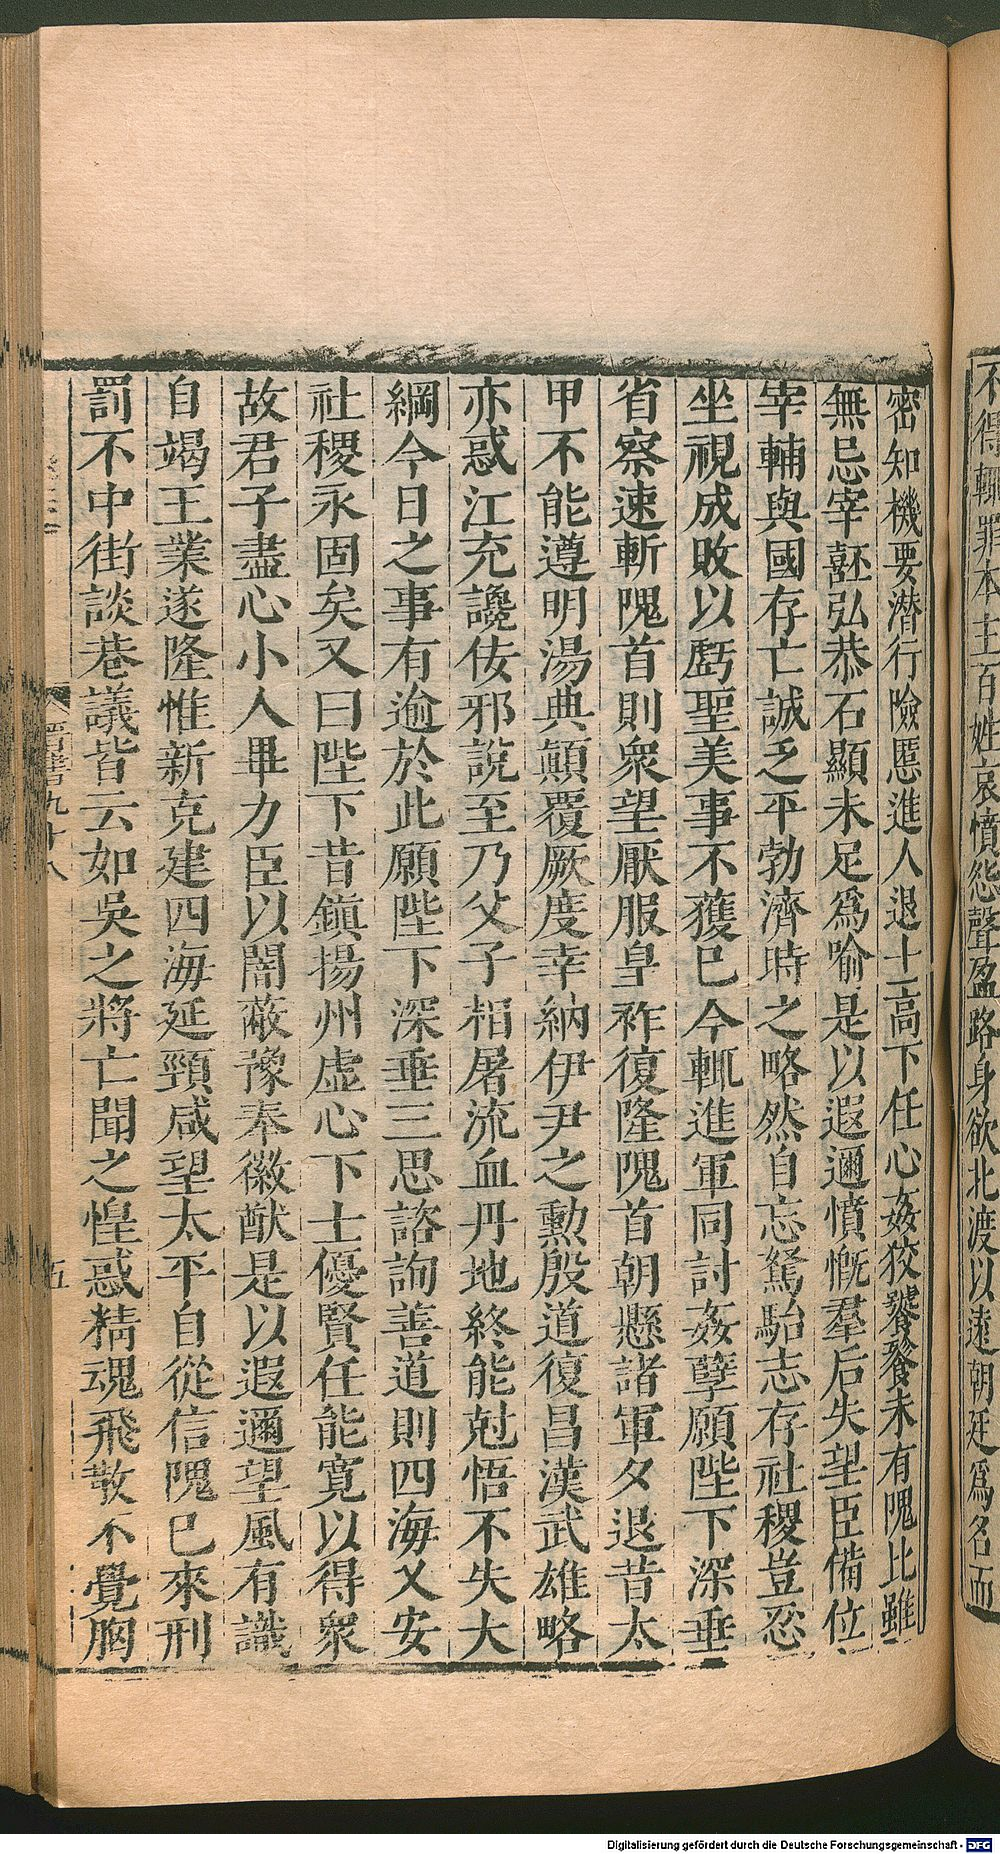 不得輒罪本主百姓哀憤怨聲盈路身欲北渡以遠朝廷爲名而
密知機要潜行險慝進人退士高下任心姦狡饕餮未有隗比雖
無忌宰嚭弘恭石顯未足爲喻是以遐邇憤慨羣后失望臣備位
宰輔與國存亡誠乏平勃濟時之略然自忘駑駘志存社稷豈忍
坐視成敗以虧聖美事不獲已今輒進軍同討姦孽願陛下深垂
省察速斬隗首則衆望厭服皇祚復隆隗首朝懸諸軍夕退昔太
甲不能遵明湯典顛覆厥度幸納伊尹之勳殷道復昌漢武雄略
亦惑江充讒佞邪說至乃父子相屠流血丹地終能尅悟不失大
綱今日之事有逾於此願陛下深垂三思諮詢善道則四海乂安
社稷永固矣又曰陛下昔鎮揚州虛心下士優賢任能寛以得衆
故君子盡心小人畢力臣以闇蔽豫奉徽猷是以遐邇望風有識
自竭王業遂隆惟新克建四海延頸咸望太平自從信隗已來刑
罰不中街談巷議皆云如吳之將亡聞之惶惑精魂飛散不覺胸
晋書九十八
五
Digitalisierung gefördert durch die Deutsche Forschungsgemeinschaft - DFG